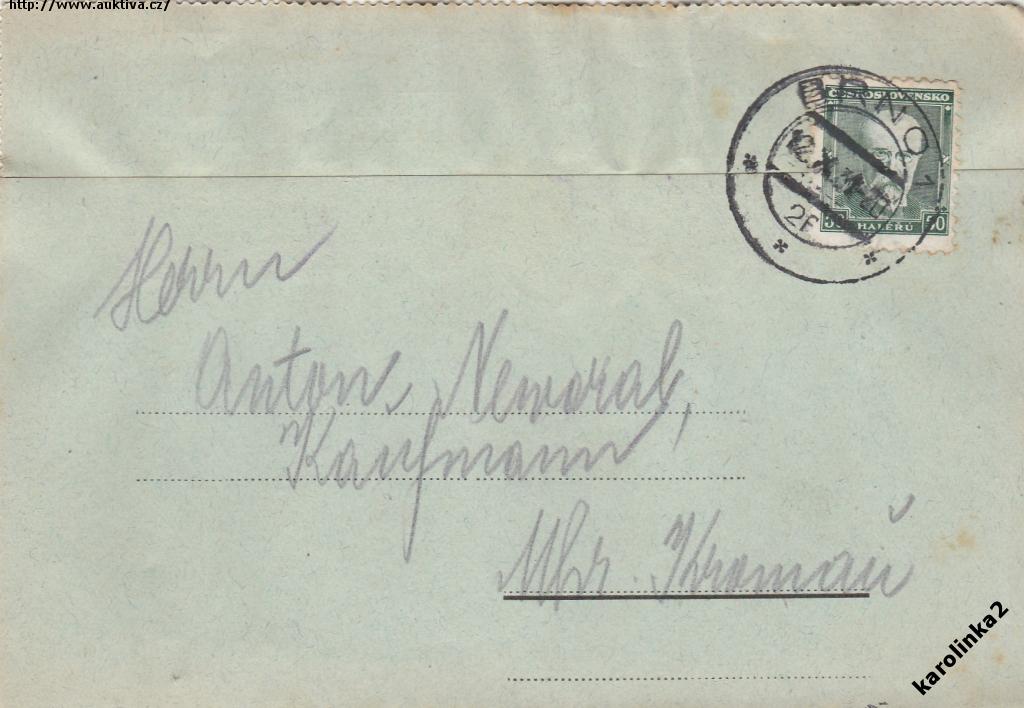 http://www.auktiva.cz/
BRNO 1
ČESKOSLOVENSKO
50 HALÉŘŮ 50
Herrn
Anton Neworal,
Kaufmann
Mhr. Kromau
karolinka2